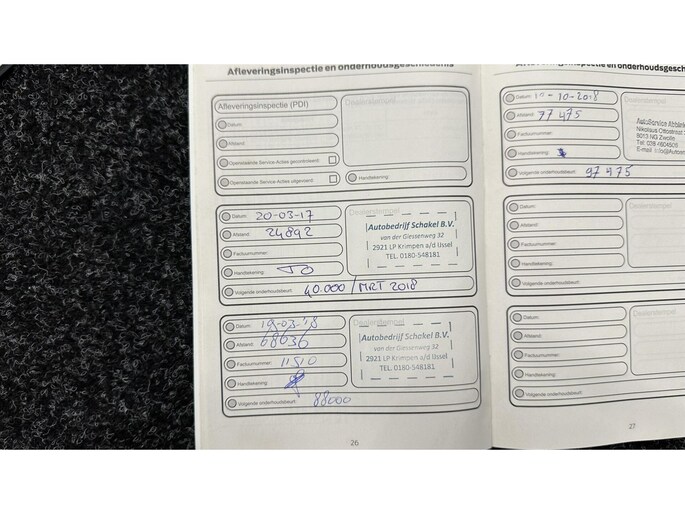 Afleveringsinspectie en onderhoudsgeschiedenis
Afleveringsinspectie (PDI)
Dealerstempel
Datum:
Afstand:
Openstaande Service-Acties gecontroleerd:
Openstaande Service-Acties uitgevoerd:
Handtekening:
Datum: 20-03-17
Dealerstempel
Afstand: 24892
Factuurnummer:
Handtekening:
Volgende onderhoudsbeurt: 40.000 / MRT 2018
Autobedrijf Schakel B.V.
van der Giessenweg 32
2921 LP Krimpen a/d IJssel
TEL. 0180-548181
Datum: 19-03-'18
Dealerstempel
Afstand: 68636
Factuurnummer: 11510
Handtekening:
Volgende onderhoudsbeurt: 88000
Autobedrijf Schakel B.V.
van der Giessenweg 32
2921 LP Krimpen a/d IJssel
TEL. 0180-548181
26
Datum: 10-2018
Dealerstempel
Afstand: 77475
Factuurnummer:
Handtekening:
Volgende onderhoudsbeurt: 97475
AutoService
Nikolaus Ottostraat
8013 NG Zwolle
Tel: 038 4604506
E-mail:
Datum:
Afstand:
Factuurnummer:
Handtekening:
Volgende onderhoudsbeurt:
Datum:
Afstand:
Factuurnummer:
Handtekening:
Volgende onderhoudsbeurt:
27